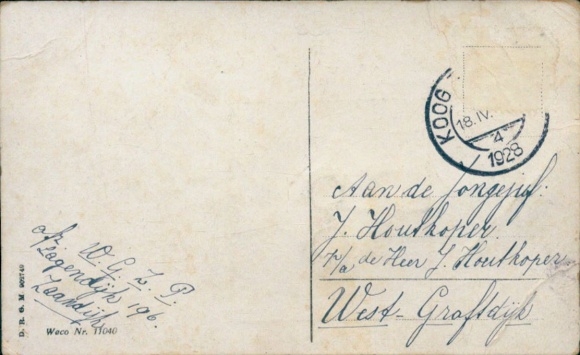 KOOG
18.IV.
4
1928
Aan de Jongejuf.
J. Houtkoper.
p/a de Heer J. Houtkoper
West-Graftdijk
Afz. W. G. Z. P.
Lagendijk 196.
Zaandijk
D. R. G. M.
Weco Nr. 11040